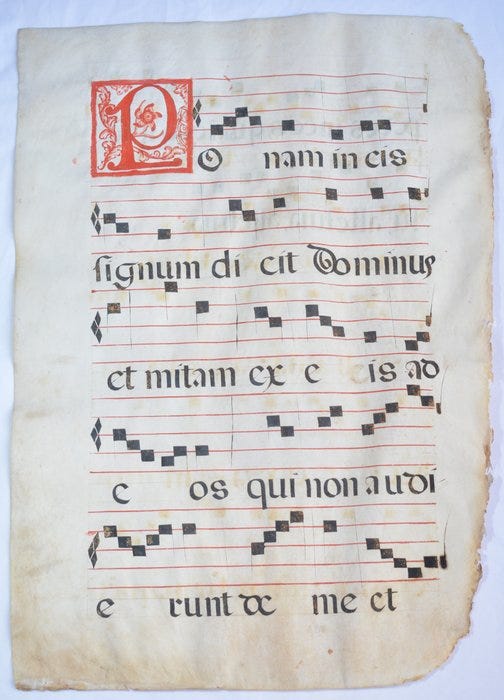 PO nam in cis
signum di cit Dominus
et mitam ex e is ad
e os qui non audi
e runt de me et